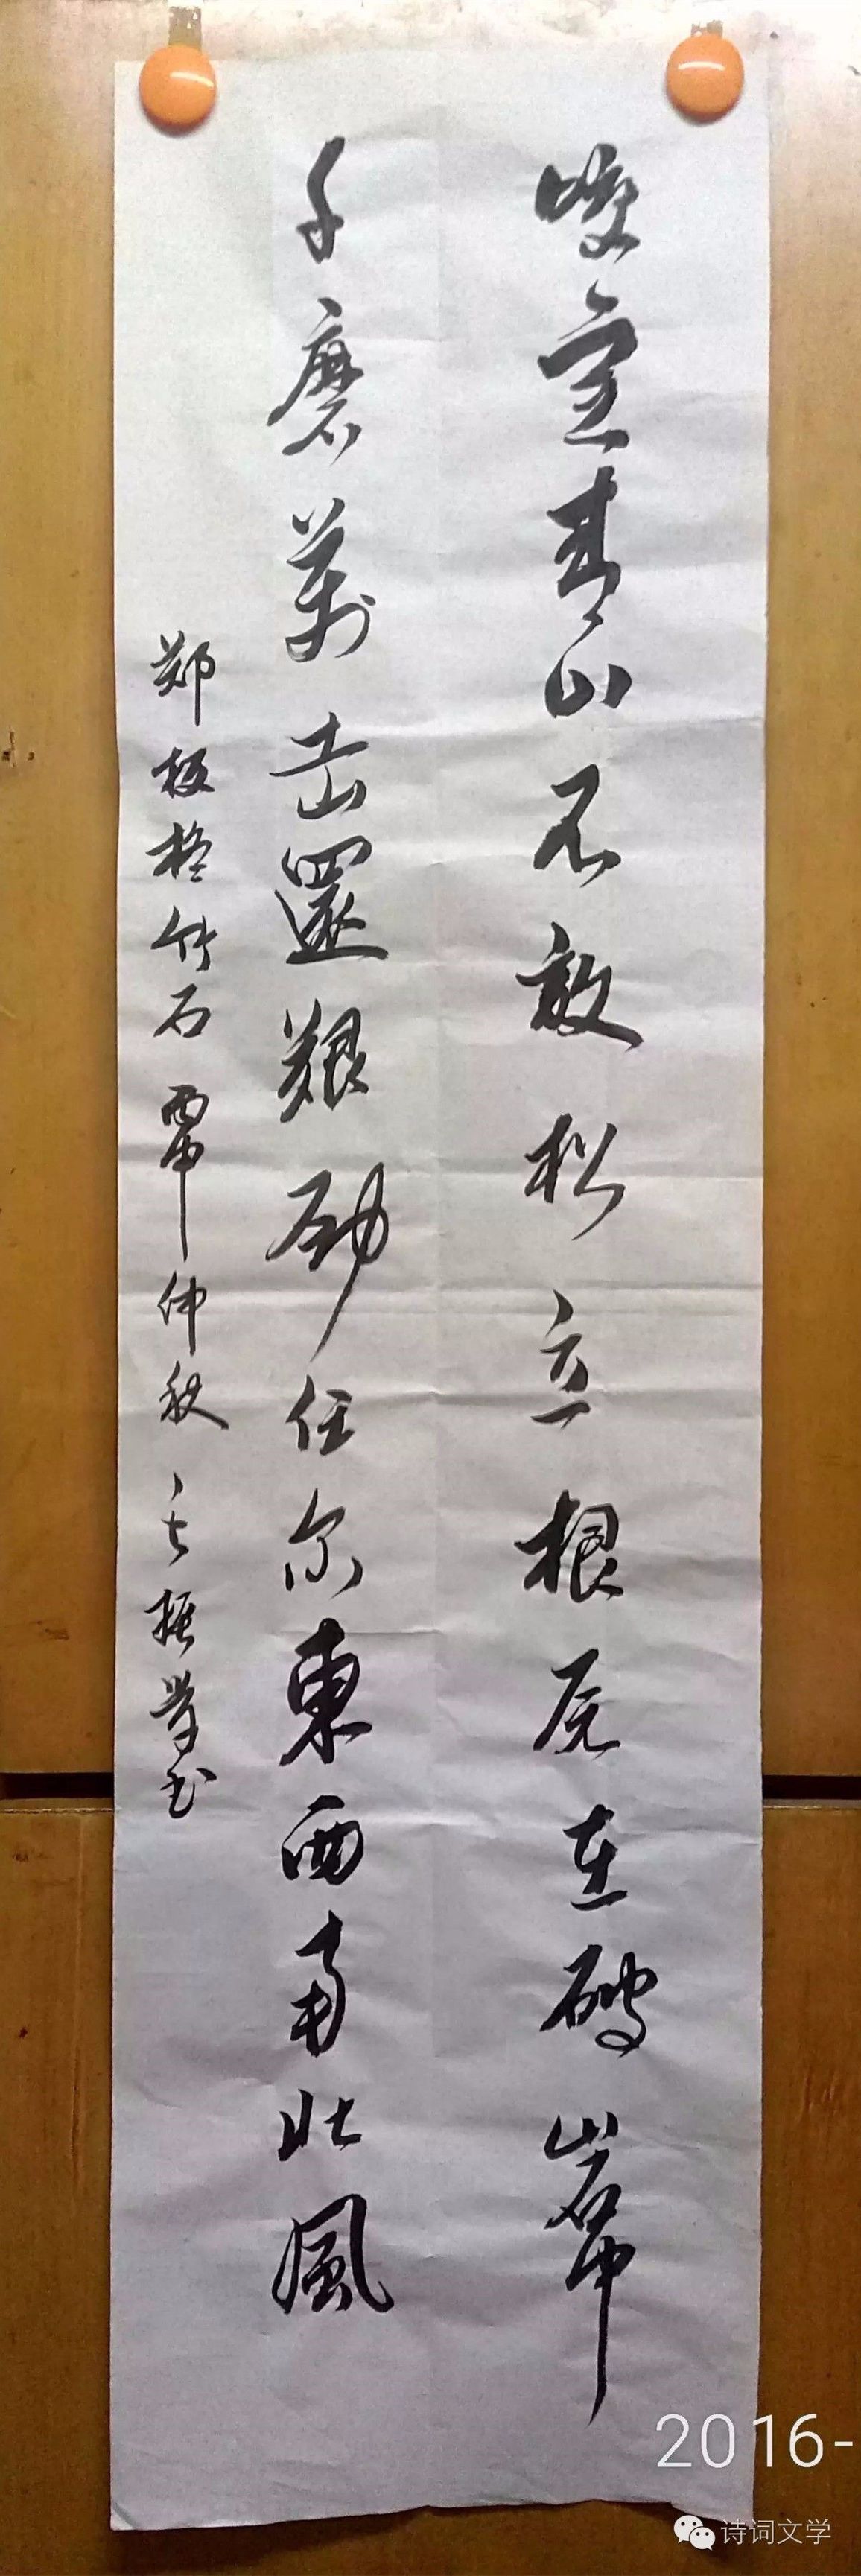 咬定青山不放松立根原在破岩中
千磨萬击還艱劲任尔東西南北風
郑板桥竹石 丙申仲秋 振学书
2016-
诗词文学